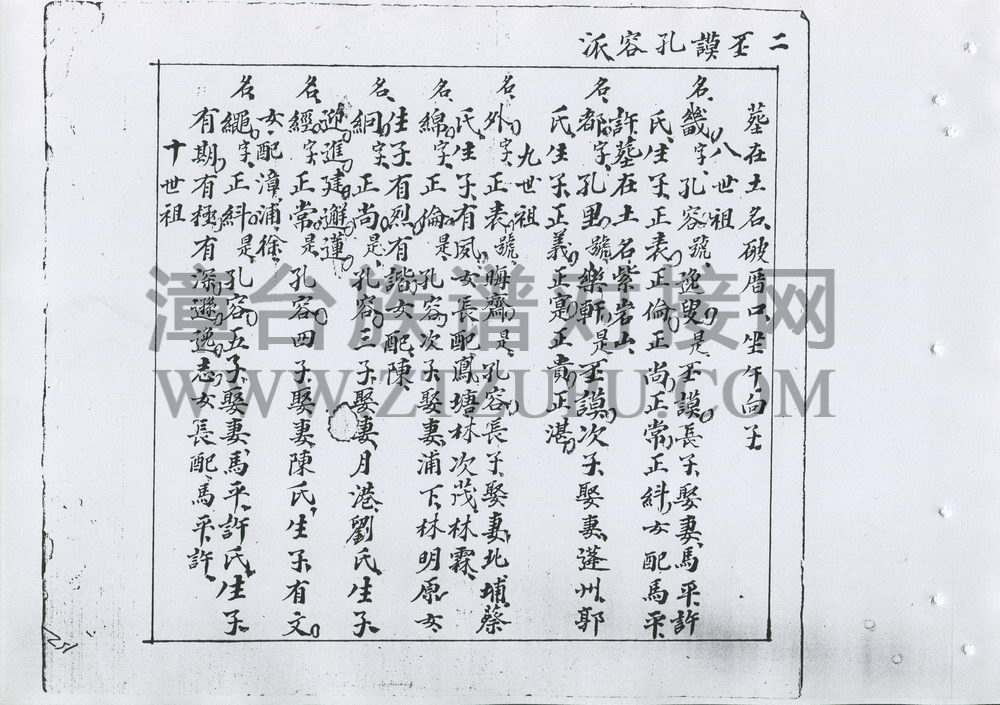 二丕謨孔容派
墓在土名破厝口坐午向子
八世祖
名畿字孔容號逸叟是丕謨長子娶妻馬平許
氏生子正表正倫正尚正常正紏女配馬平
許墓在土名紫岩山
名都字孔里號樂軒是丕謨次子娶妻蓬州郭
氏生子正義正寔正貴正湛
九世祖
名外字正表號晦齋是孔容長子娶妻北埔蔡
氏生子有鳳女長配鳳塘林次茂林霖
名綿字正倫是孔容次子娶妻浦下林明原女
生子有烈有諧女配陳
名絅字正尚是孔容三子娶妻月港劉氏生子
遜進建邂蓮
名經字正常是孔容四子娶妻陳氏生子有文
女配漳浦徐
名繩字正紏是孔容五子娶妻馬平許氏生子
有期有極有深遜逸志女長配馬平許
十世祖
漳台族谱对接网
WWW.ZIZULU.COM